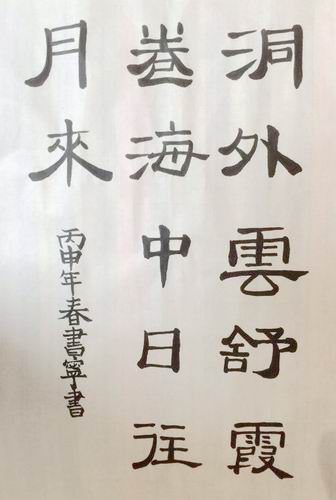 洞外雲舒霞
卷海中日往
月來
丙申年春書寧書